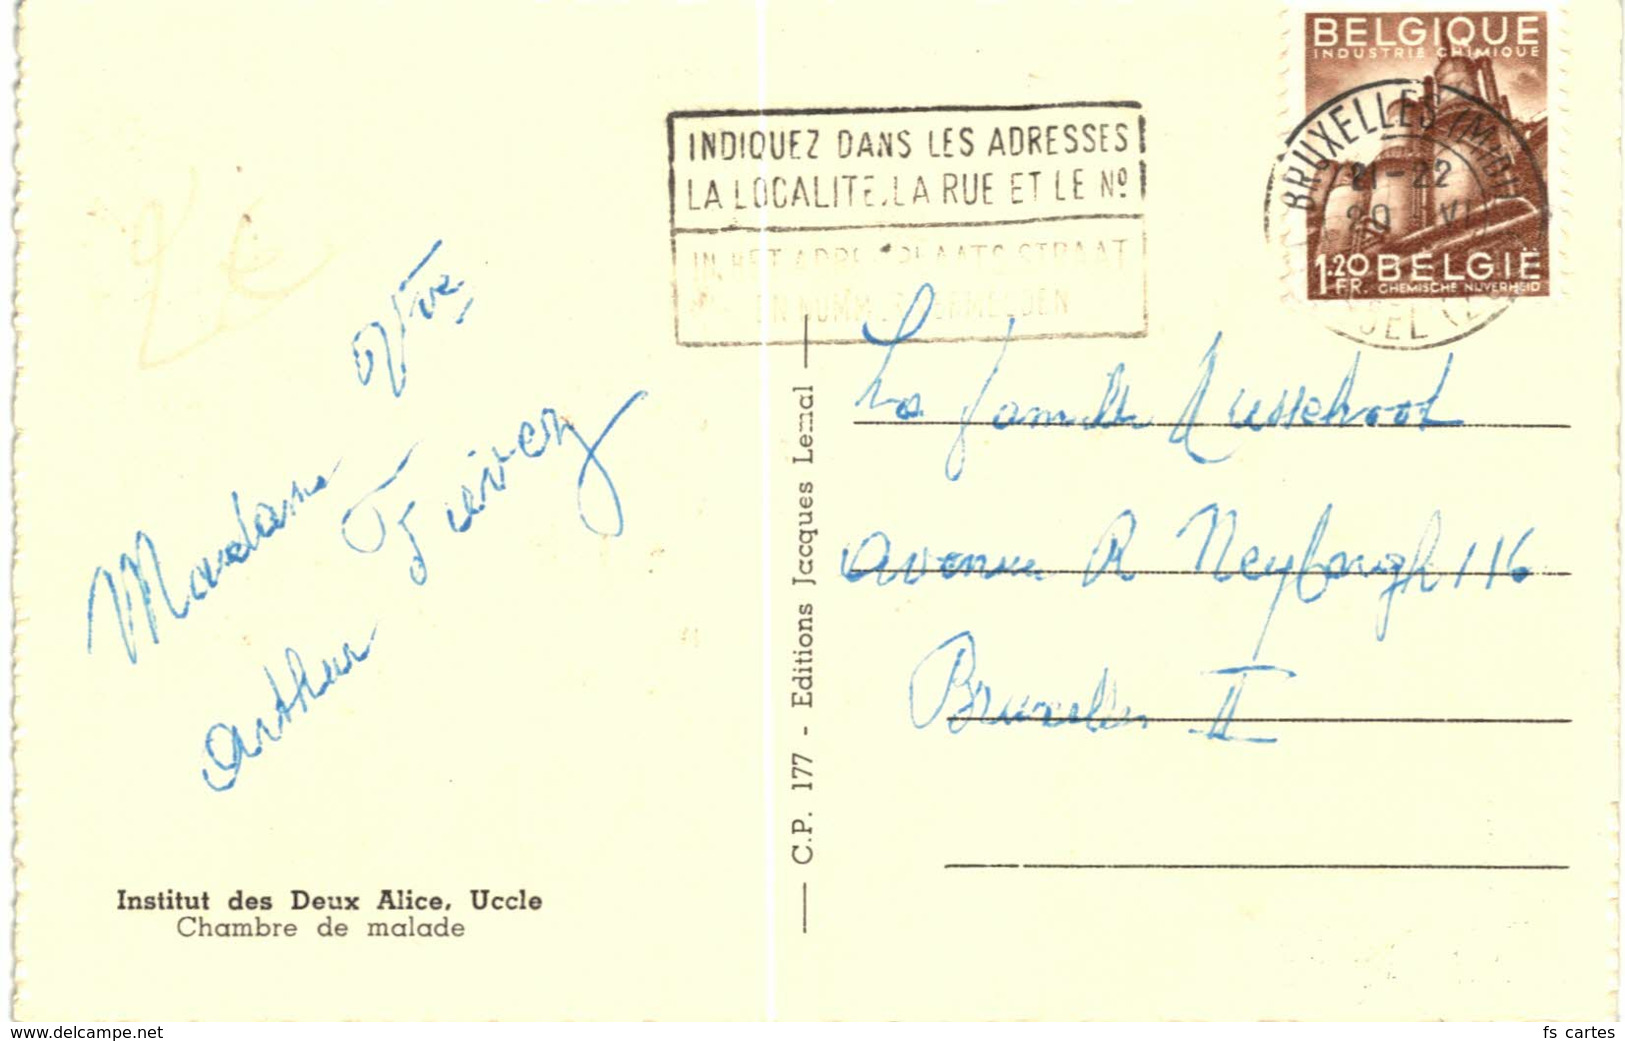 BELGIQUE
INDUSTRIE CHIMIQUE
BRUXELLES (MIDI)
21-22
20 VI
1.20 BELGIË
FR. CHEMISCHE NIJVERHEID
INDIQUEZ DANS LES ADRESSES
LA LOCALITE, LA RUE ET LE Nº
IN HET ADRES PLAATS STRAAT
EN NUMMER VERMELDEN
2 €
Madame Vve
Arthur
La famille
avenue R Neybergh 116
Bruxelles II
C.P. 177 - Editions Jacques Lemal
Institut des Deux Alice, Uccle
Chambre de malade
www.delcampe.net
fs cartes